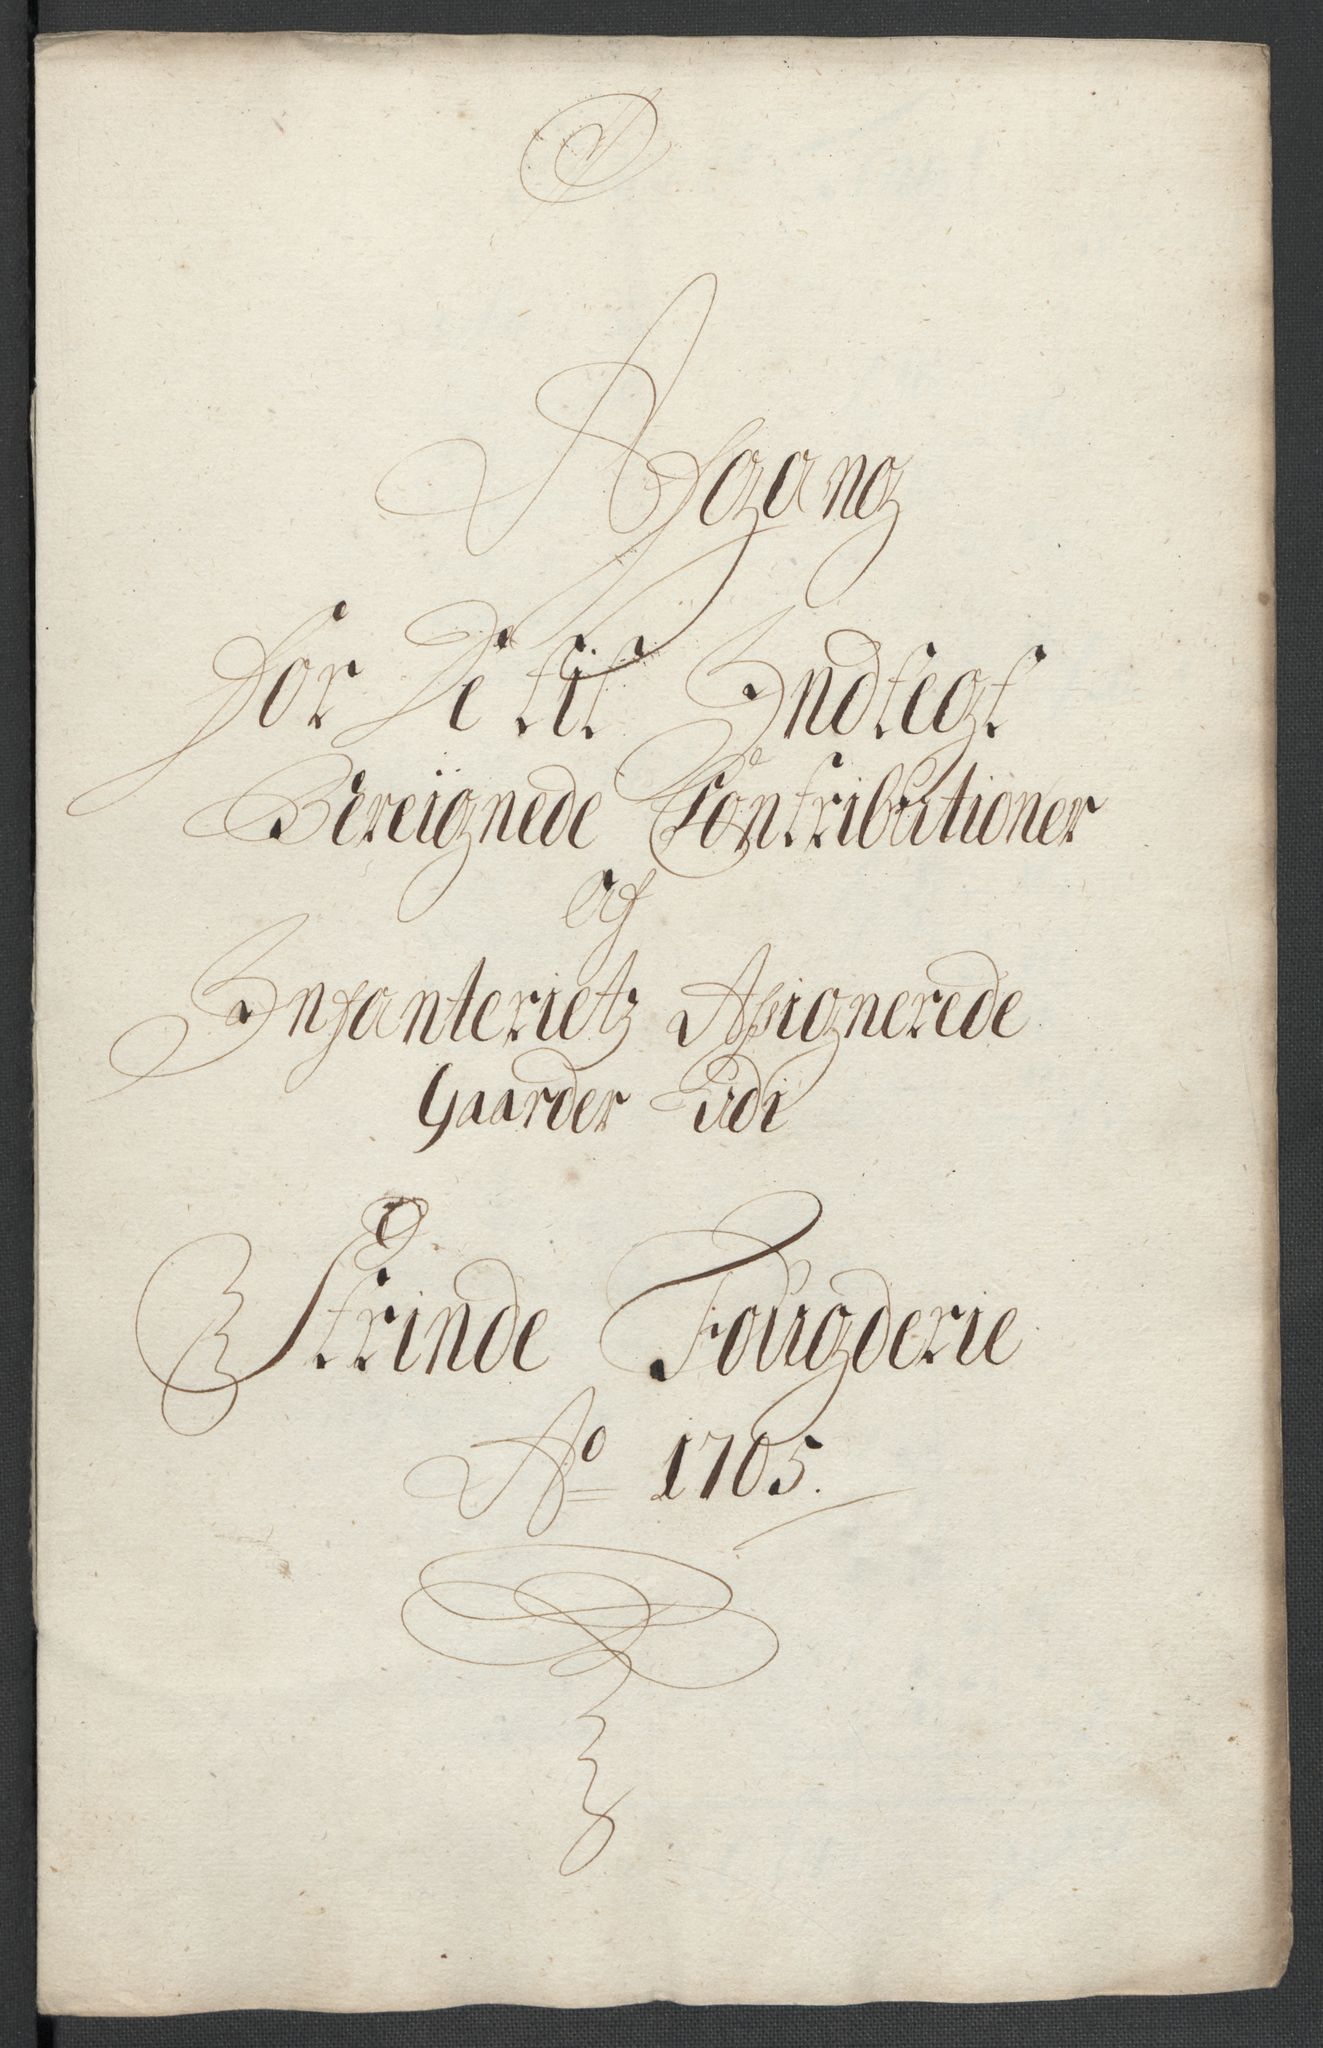 Afgang
for De til Indtegt
Bereignede Contributioner
af
Infanterietz Assignerede
Gaarder udi
Strinde Fougderie
Ao 1705.